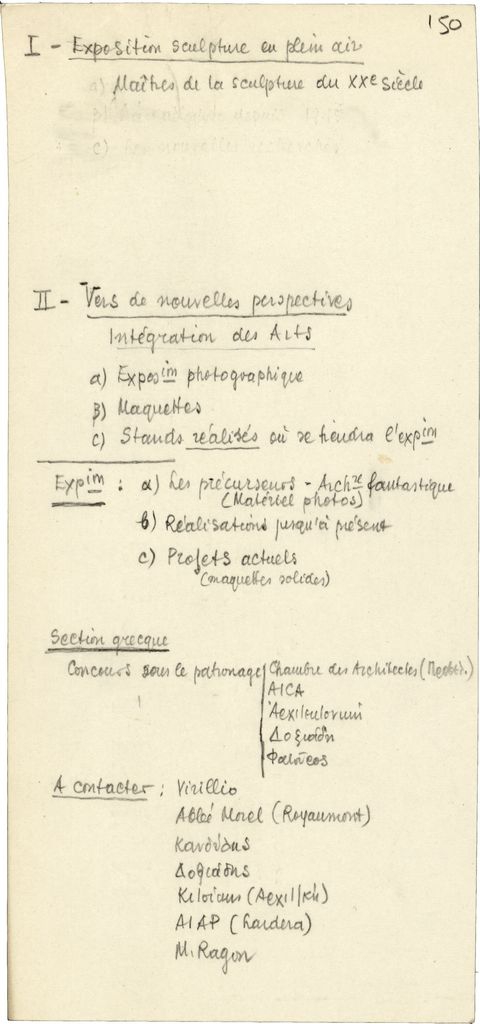 150
I - Exposition sculpture en plein air
a) Maîtres de la sculpture du XXe siècle
II - Vers de nouvelles perspectives
Intégration des Arts
a) Exposim photographique
β) Maquettes
c) Stands réalisés où se tiendra l'expim
Expim : a) Les précurseurs - Archre fantastique
(Matériel photos)
b) Réalisations jusqu'à présent
c) Projets actuels
(maquettes solides)
Section grecque
Concours sous le patronage Chambre des Architectes
AICA
Δοξιάδη
Φατούρος
A contacter : Virillio
Abbé Morel (Royaumont)
Κανδύλης
Δοξιάδης
AIAP (Lardera)
M. Ragon